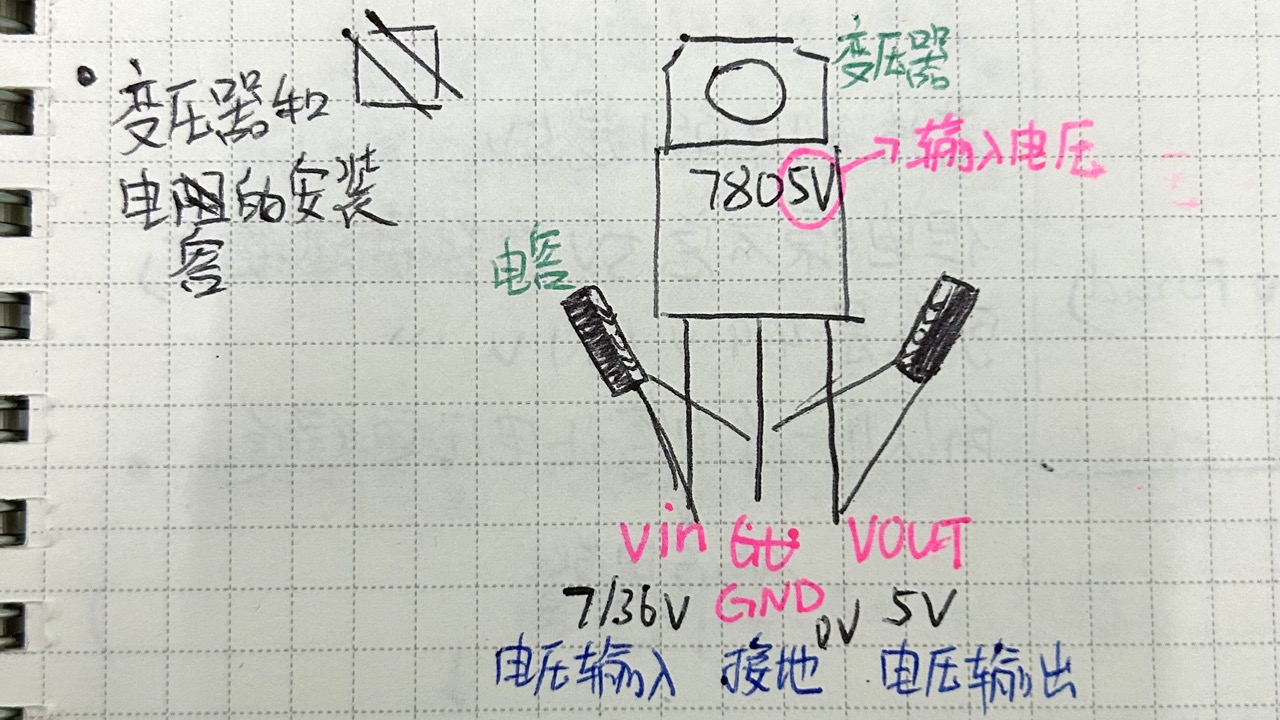 变压器和
电阻的安装
容
变压器
7805V
输入电压
电容
Vin
VOUT
7/36V
GND
0V
5V
电压输入
接地
电压输出